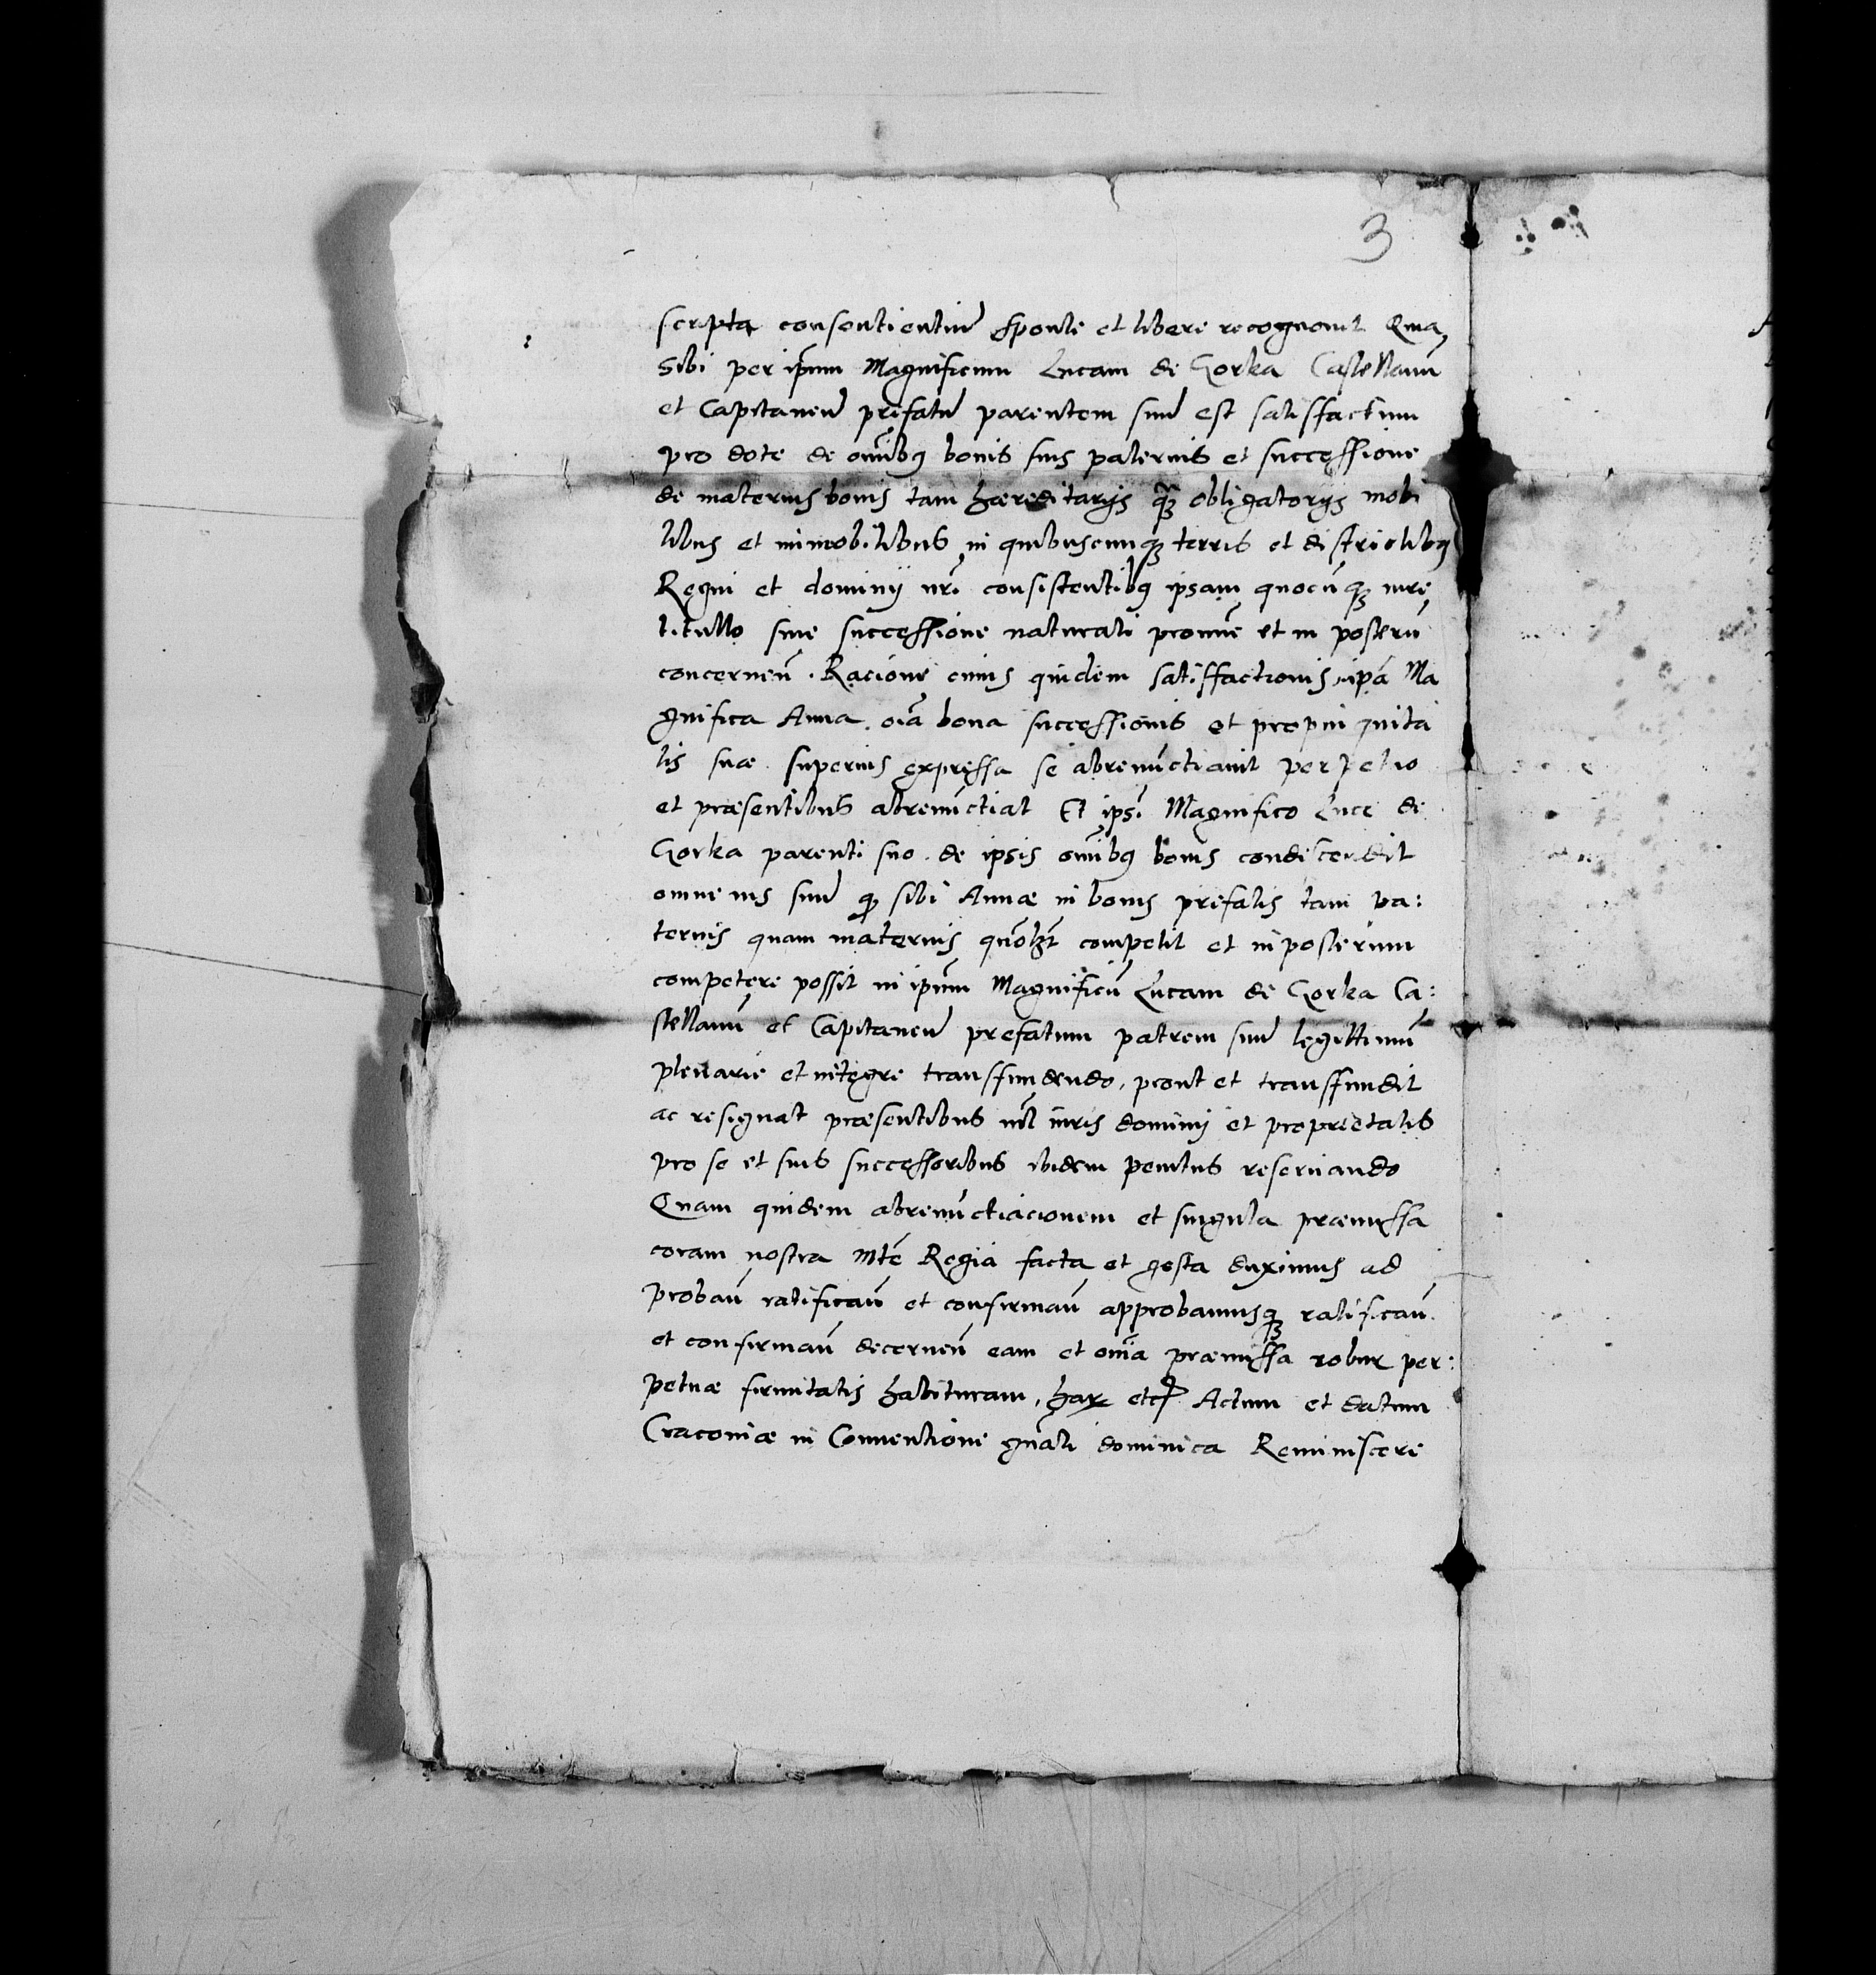 3
scripta consentientiũ sponte et libere recognouit Quia
Sibi per ip̃um Magnificum Lucam de Gorka Castellanũ
et Capitaneũ prefatũ parentem suũ est satisfactum
pro dote de om̃ibꝯ bonis suis paternis et successione
de maternis bonis tam hæreditarijs q̃ꝫ obligatorijs mobi
libus et immobilibus in quibuscunqꝫ terris et districtibꝯ
Regni et dominij nr̃i consistentibꝯ ipsam quocũqꝫ iure
titullo siue successione naturali pronũc et in posterũ
concerneñ. Racione cuius quidem satisfactionis ip̃a Ma
gnifica Anna oĩa bona successionis et propinquita
tis suæ superius expressa se abrenũctiauit perpetuo
et præsentibus abrenũctiat Et ipsi Magnifico Luce de
Gorka parenti suo de ipsis om̃ibꝯ bonis condescendit
omne ius suũ qꝫ sibi Annæ in bonis prefatis tam pa:
ternis quam maternis quõlꝫt competit et in posterum
competere possit in ip̃um Magnificũ Lucam de Gorka Ca:
stellanũ et Capitaneũ prefatum patrem suũ legittimũ
plenarie et integre transfundendo, prout et transfundit
ac resignat præsentibus nĩl iuris dominij et proprietatis
pro se et suis successoribus ibidem penitus reseruando
Quam quidem abrenũctiacionem et singula præmissa
coram nostra Mte Regia facta et gesta duximus ad
probañ ratificañ et confirmañ approbamusqꝫ ratificañ.
et confirmañ decerneñ eam et om̃ia præmissa robur per:
petuæ firmitatis habituram, har etc Actum et datum
Cracouiæ in Conuentione gñali dominica Reminiscere